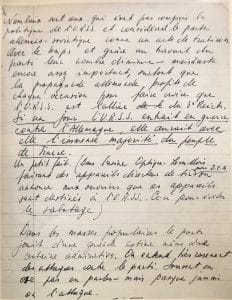 Nombreux sont ceux qui n'ont pas compris la
politique de l'U.R.S.S. et considèrent le pacte
germano-soviétique comme un acte de trahison
Avec le temps et grâce au travail du
parti leur nombre diminue - mais reste
encore assez important, surtout que
la propagande allemande profite de
chaque occasion pour faire croire que
l'U.R.S.S. est l'alliée du Reich.
Si un jour l'U.R.S.S. entrait en guerre
contre l'Allemagne, elle aurait avec
elle l'immense majorité du peuple
de France.
Un petit fait : Une usine Optique
fournit des appareils de
annonce aux ouvriers que ces appareils
sont destinés à l'U.R.S.S. (Ceci pour éviter
le sabotage)
Dans les masses populaires le parti
jouit d'une grande estime même d'une
certaine admiration. On entend très rarement
des attaques contre le parti. Souvent on
n'ose pas en parler mais presque jamais
on l'attaque.